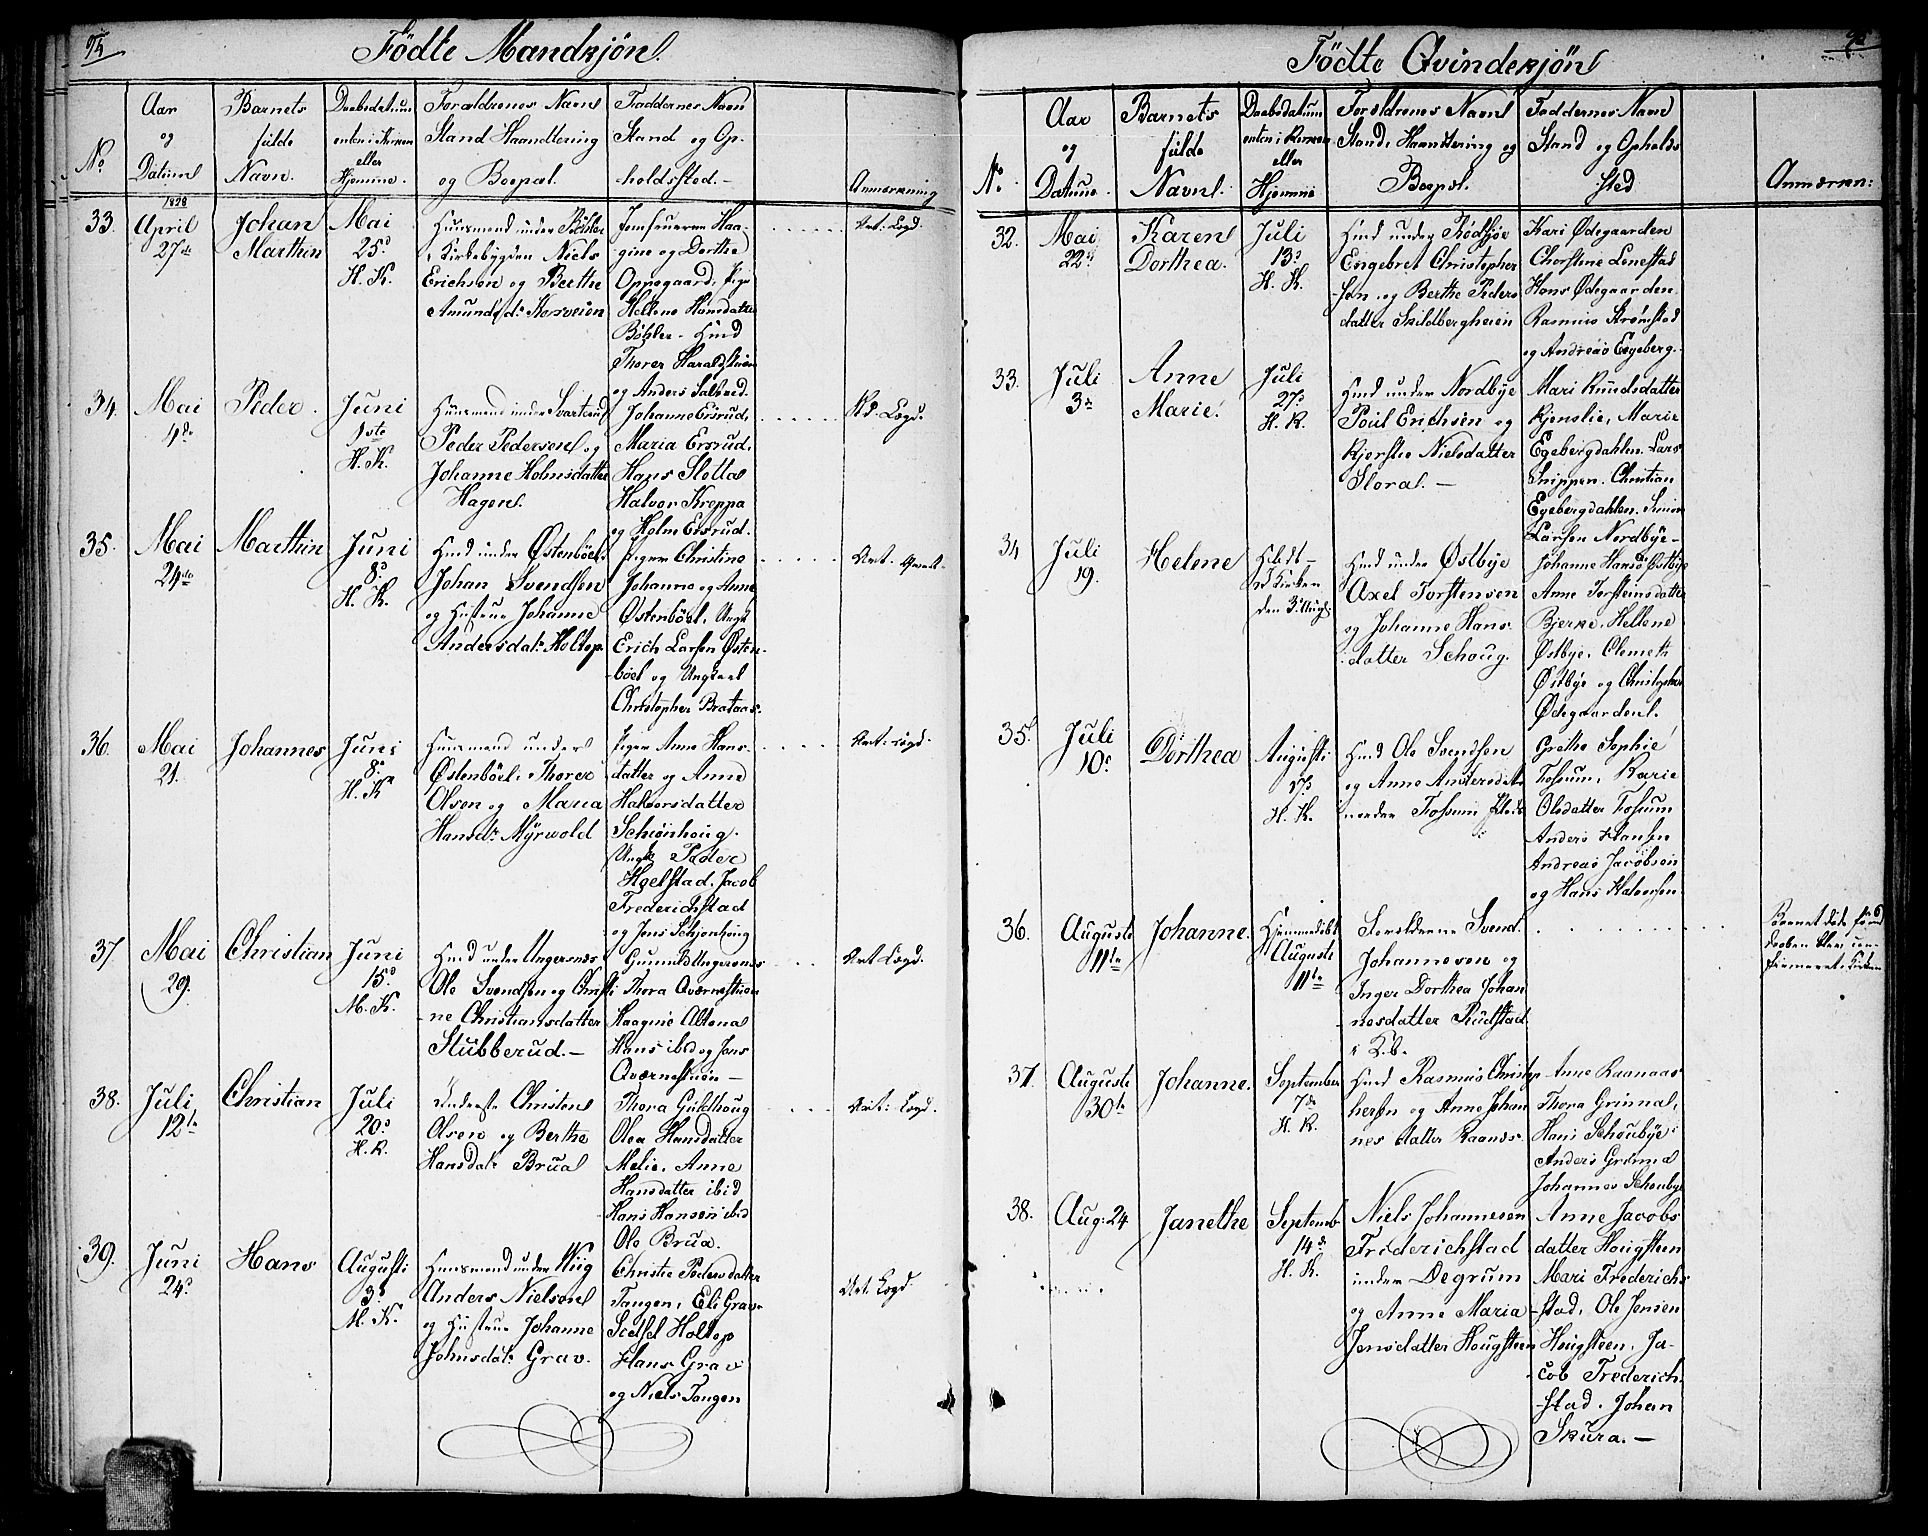 Födte Mandkjön.
No
Aar
og
Datum
Barnets
fulde
Navn.
Daabsdatum
enten i Kirken
eller
Hjemme.
Forældrenes Navn
Stand Haandtering
og Boepæl.
Faddernes Navn
Stand og Op-
holdssted.-
Anmærkning
33.
1828
April
27de
Johan
Marthin
Mai
25d
H. K.
Huusmand under Böhler
i Kirkebygden Niels
Erichsen og Berthe
Amundsdr Korsveien
Jomfruerne Haa-
gine og Dorthe
Oppegaard, Pige
Hellene Hansdatter
Böhler. Huusd
Thorer Haraldstuen
og Anders
34.
Mai
4de
Peder.
Juni
1ste
H. K.
Huusmand under Svarterud
Peder Pedersen og
Johanne Holmsdatter
Hagen.
Johanne Ersrud,
Maria Ersrud,
Hans Sletta
Halvor Kreppa
og Holm Ersrud.
35.
Mai
24de
Marthin
Juni
8d
H. K.
Huusd under Östenböel
Johan Svendsen
og Hustrue Johanne
Andersdatr Holtop
Pigen Christine
Johanne og Anne
Östenböel, Ungk
Erich Larsen Östen-
böel og Ungkael
Christopher Brataas.
36.
Mai
21.
Johannes
Juni
8d
H. K.
Huusmand under
Östenböel, Thorer
Olsen og Maria
Hansdr Myrwold
Pigen Anne Hans-
datter og Anne
Halvorsdatter
Schiönhoug.
Ungk Peder
Hgelstad, Jacob
Frederichstad
og Jens Schjonhoug
37.
Mai
29.
Christian
Juni
15d
M. K.
Huusd under Ungersnæs
Ole Svendsen og Christi
-ne Christiansdatter
Stubberud.-
Gunnild Ungersnæs
Thora Qværnstuen
Haagine Altena
Hans ibid og Jens
Qværnstuen-
38.
Juli
12te
Christian
Juli
20d
H. K.
Christen
Olsen og Berthe
Hansdatr Brua
Thora Guldhoug
Olea Hansdatter
Melie. Anne
Hansdatter ibid
Hans Hansen ibid
Ole Brua.
39.
Juni
24d
Hans
Augusti
3d
M. K.
Huusmand under Wiig
Anders Nielsen
og Hustrue Johanne
Johnsdatr Grav.
Christie Pedersdatter
Tangen, Eli Grav.
Holtop
Hans Grav
og Niels Tangen
Födte Qvindekjön
No.
Aar
og
Datum.
Barnets
fulde
Navn.
Daabsdatum
enten i Kirken
eller
Hjemme
Forældrenes Navn
Stand, Haandtering og
Boepæl.
Faddernes Navn
Stand og Opholds
sted
Anmærkn:
32.
Mai
22d
Karen
Dorthea.
Juli
13d
H. K.
Huusd under Rödsjöe
Engebret Christopher
-sen og Berthe Peders
datter Skildbergheien
Kari Ödegaarden
Chorstine Lenestad
Hans Ödegaarden
Rasmus Strömstad
og Andreas Egeberg.
33.
Juli
3de
Anne
Marie.
Juli
27d
H. K.
Huusd under Nordbye
Poul Erichsen og
Kjerstie Nielsdatter
Storal.-
Mari Knudsdatter
Kjenslie, Marie
Egebergdahlen. Lars
Snippen. Christian
Egebergdahlen. Simon
Larsen Nordbye-
34
Juli
19.
Helene
Kirken
Huusd under Östbye
Axel Torstensen
og Johanne Hans
datter Schoug.
Johanne Hansd Östbye
Anne Torsteinsdatter
Bjerke, Hellene
Östbye, Clemeth
Östbye og Christopher
Ödegaarden.
35.
Juli
10d
Dorthea
Augusti
H. K.
Huusd Ole Svendsen
og Anne Andersdatter
nordre Fossum
Grethe Sophie
Fossum, Karie
Olsdatter Fossum
Anders Hansen
Andreas Jacobsen
og Hans Halvorsen
36.
Auguste
11te
Johanne.
Hjemmedöbt
Auguste
11te
Forældrene Svend
Johannesen og
Inger Dorthea Johan
nesdatter Rudstad
i K.b.
Barnet döde förend
Daaben blev con-
firmeret i Kirken
37.
Auguste
30te
Johanne.
September
7de
H. K.
Huusd Rasmus Christop
hersen og Anne Johan
nes datter Raanaas.
Anne Raanaas
Thora Grimmel,
Hans Schoubye
Anders Grimmel
Johannes Schoubye
38.
Aug: 24
Janethe
Septemb
14d
H. K.
Niels Johannesen
Friderichstad
under Degrum
og Anne Maria
Jensdatter Hougsteen
Anne Jacobs
datter Hougsteen
Mari Frederichs
-stad, Ole Jensen
Hougsteen, Ja-
cob Frederich-
-stad. Johan
Skura.-